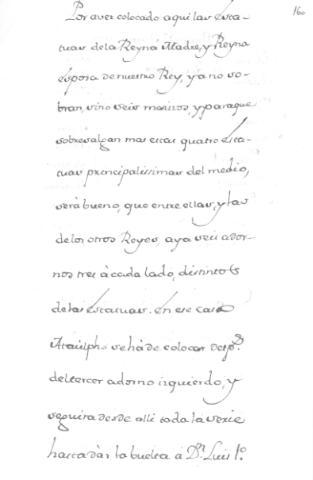 160
Por aver colocado aqui las esta-
tuas de la Reyna Madre, y Reyna
esposa de nuestro Rey, ya no so-
bran, sino seis macisos, y para que
sobresalgan mas estas quatro esta-
tuas principalissimas del medio,
será bueno, que entre ellas, y las
de los otros Reyes, aya seis ador-
nos tres à cada lado, distintos
de las estatuas. en ese caso
Ataulpho se hà de colocar desp.s
del tercer adorno izquierdo, y
seguira desde alli toda la serie
hasta dàr la buelta à D.n Luis 1.o